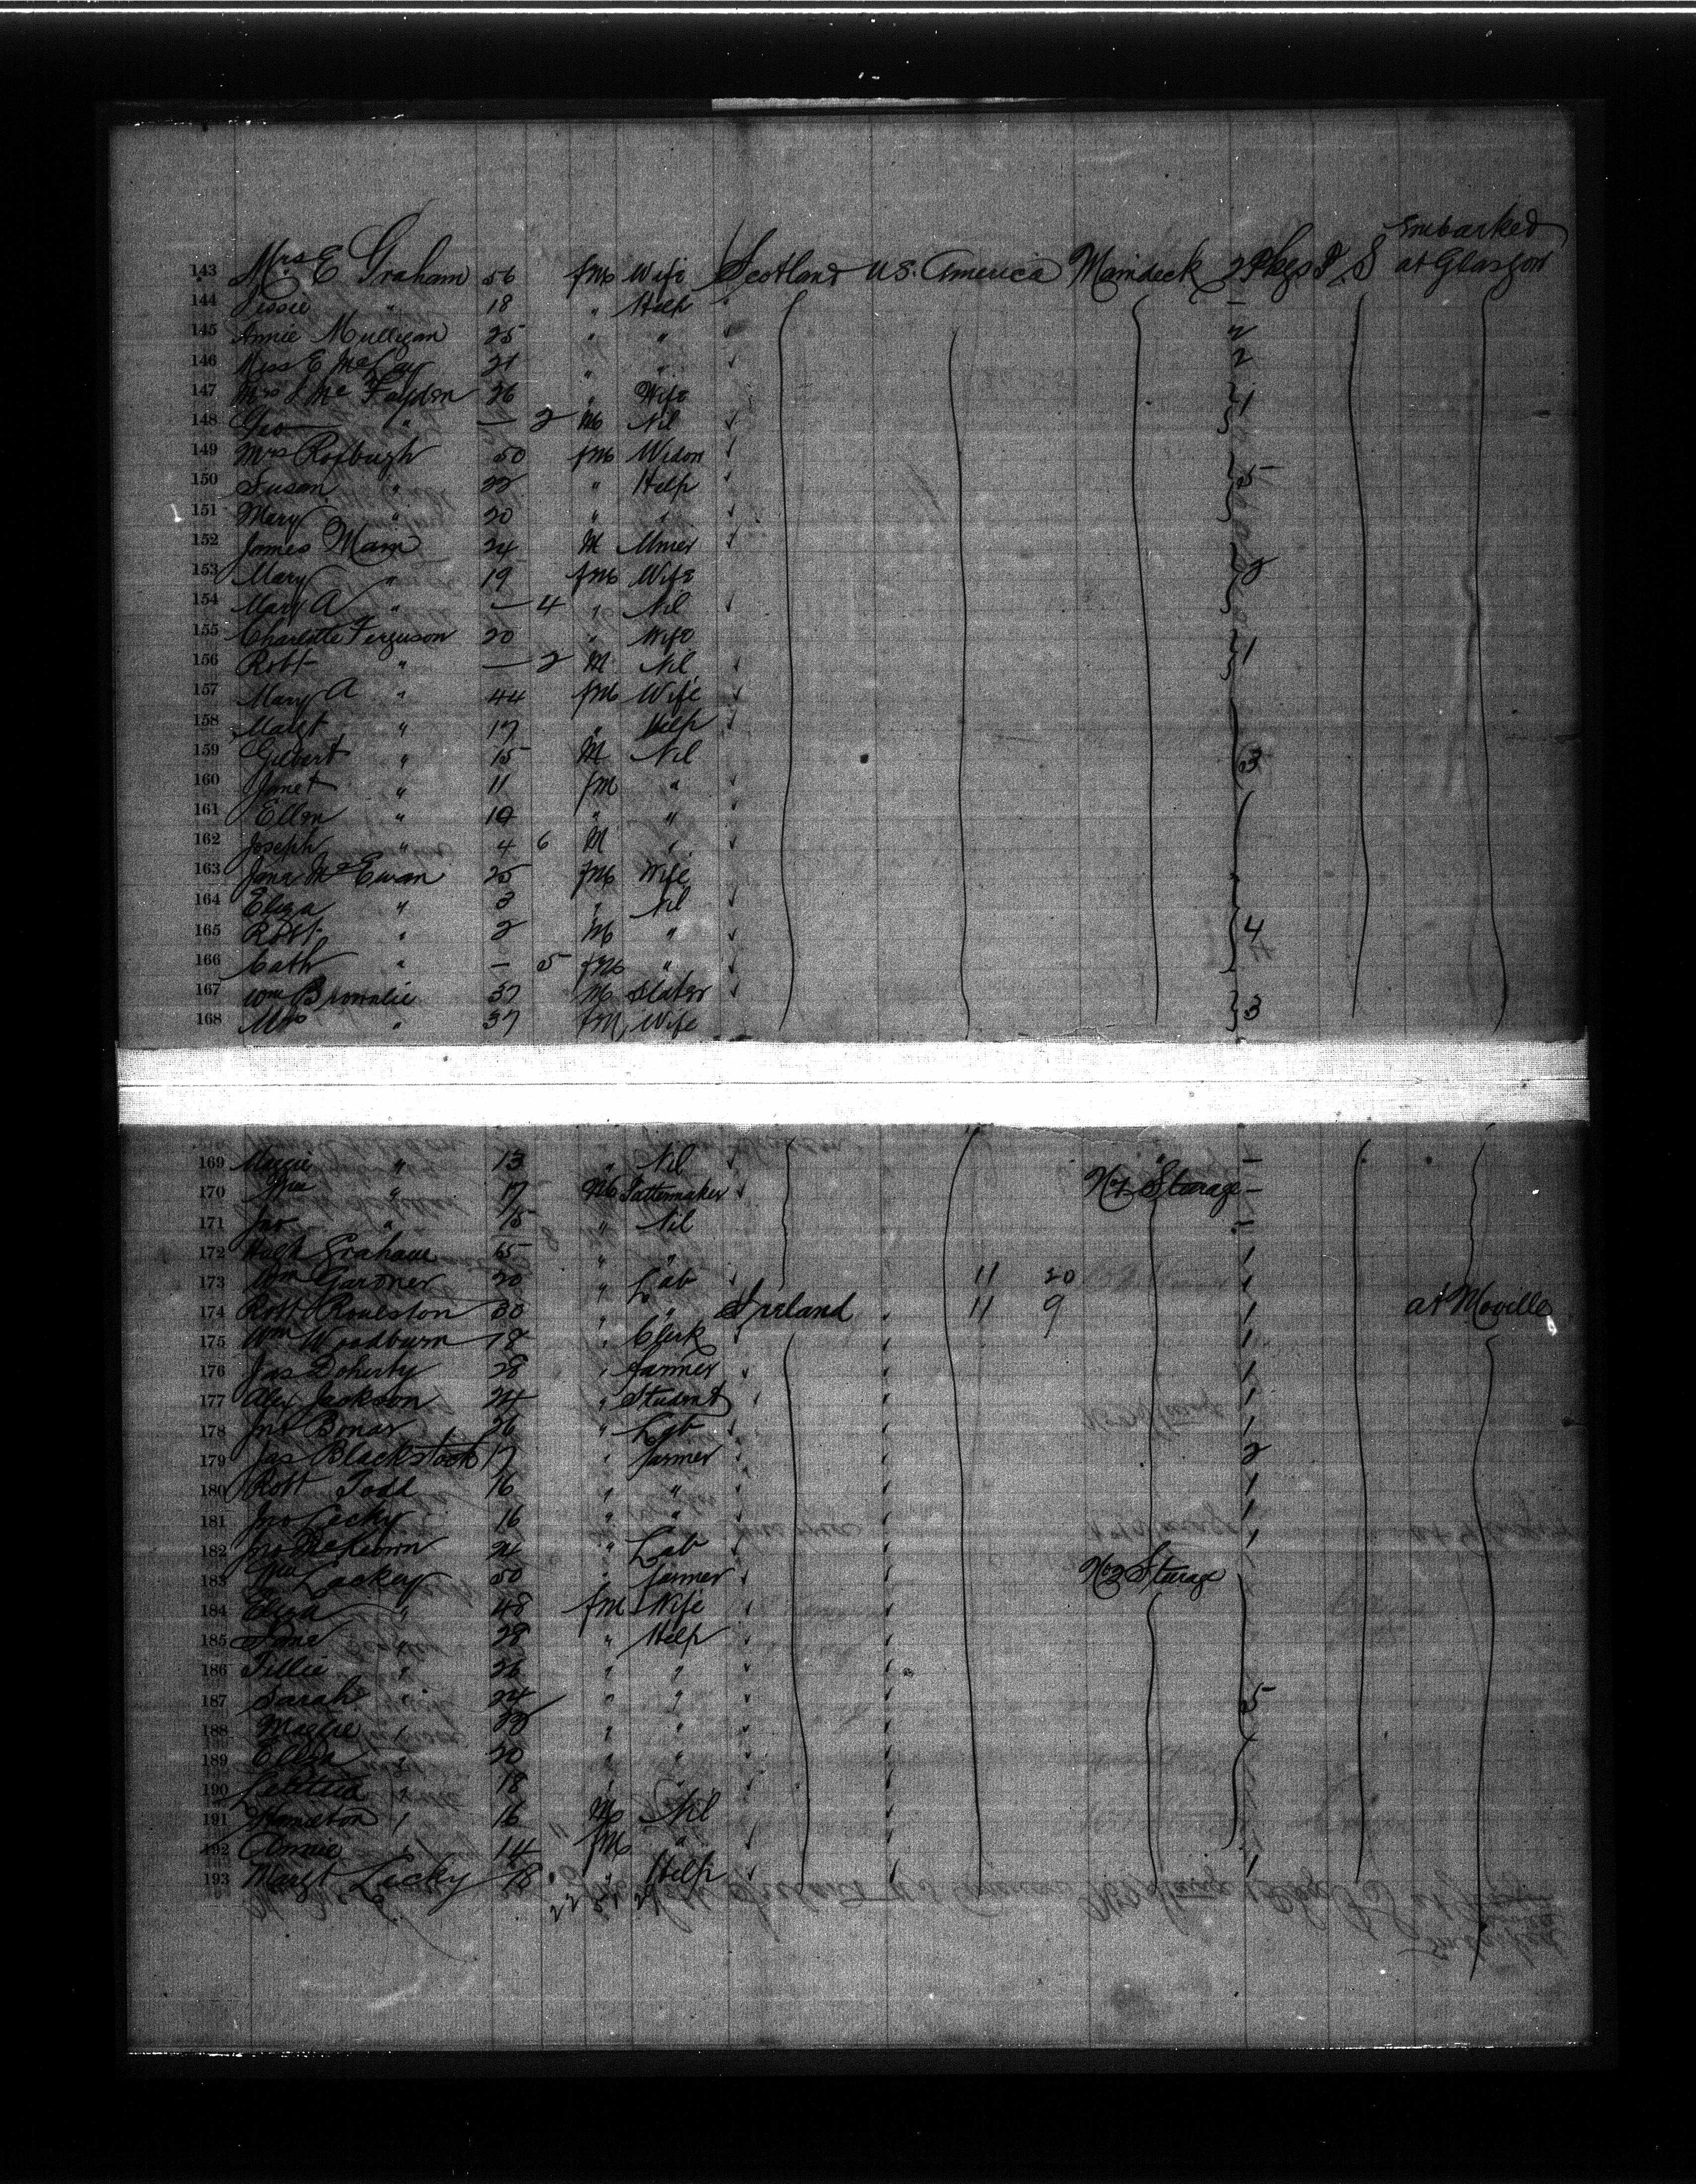 Embarked
143 Mrs E Graham 56 fm Wife Scotland U.S. America Maindeck 2 Pkgs P S at Glasgow
144 Jessie " 18 " Help -
145 Annie Mulligan 25 " " 2
146 Miss E McKay 21 " " 2
147 Mrs McFayden 26 " Wife } 1
148 Geo " — 2 M Nil
149 Mrs Roxbugh 50 fm Widow
150 Susan " 22 " Help } 5
151 Mary " 20 " "
152 James Main 24 M Miner
153 Mary " 19 fm Wife } 2
154 Mary A " — 4 " Nil
155 Charlotte Ferguson 20 " Wife
156 Robt " — 2 M Nil } 1
157 Mary A " 44 fm Wife
158 Margt " 17 " Help
159 Gilbert " 15 M Nil 3
160 Janet " 11 fm "
161 Ellen " 10 " "
162 Joseph " 4 6 M "
163 Jane McEwan 25 fm Wife
164 Eliza " 3 " Nil
165 Robt " 2 M " } 4
166 Cath " — 5 fm "
167 Wm Brownlie 37 M Slater
168 Mrs " 37 fm Wife } 3
169 Maggie " 13 " Nil -
170 Wm " 17 M Patternmaker No 1 Steerage -
171 Jno " 15 " Nil -
172 Hugh Graham 65 " " 1
173 Wm Gardner 20 " Lab 11 20 1
174 Robt Roulston 30 " " Ireland 11 9 1 at Moville
175 Wm Woodburn 18 " Clerk 1
176 Jas Doherty 28 " farmer 1
177 Alex Jackson 24 " Student 1
178 Jno Bonar 26 " Lab 1
179 Jas Blackstock 17 " farmer 2
180 Robt Todd 16 " " 1
181 Jno Lecky 16 " " 1
182 Jno McKeown 24 " Lab 1
183 Wm Lackey 50 " farmer No 2 Steerage
184 Eliza " 48 fm Wife
185 Jane " 28 " Help
186 Tillie " 26 " "
187 Sarah " 24 " " 5
188 Maggie " 22 " "
189 Eliza " 20 " "
190 Letitia " 18 " "
191 Hamilton " 16 M Nil
192 Annie " 14 fm "
193 Margt Lecky 18 " Help 1